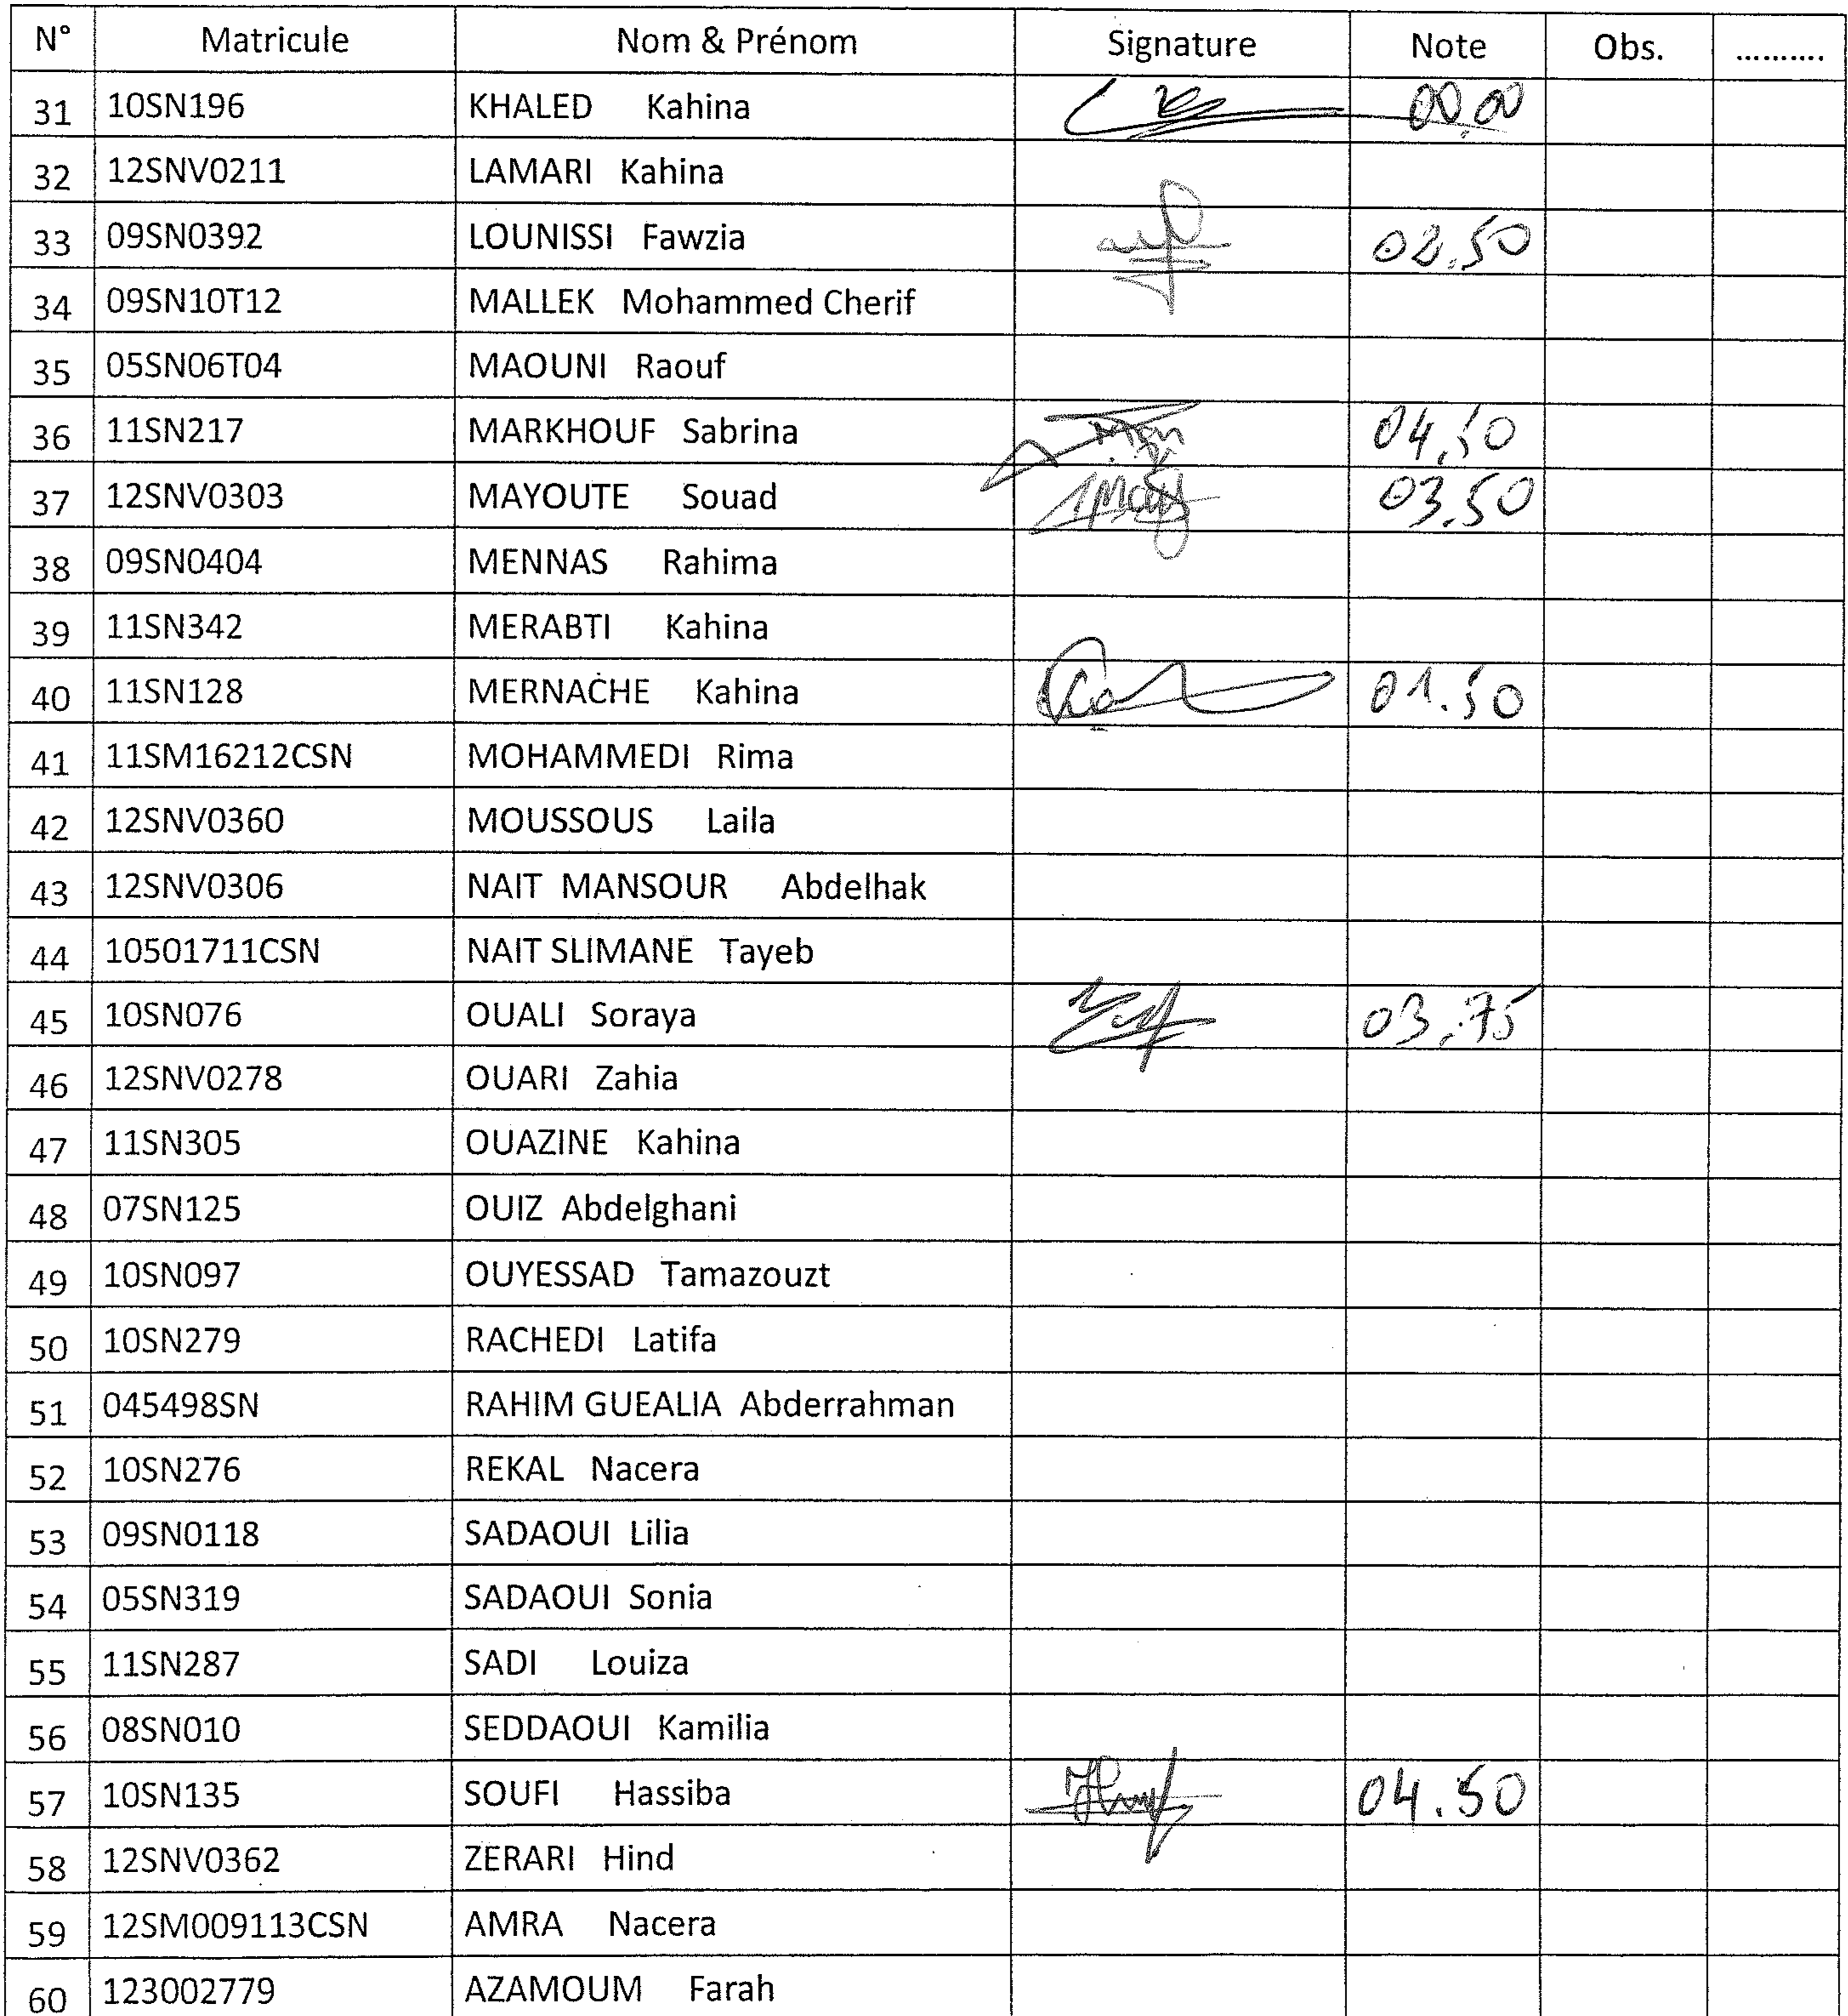 N° Matricule Nom & Prénom Signature Note Obs. ..........
31 10SN196 KHALED Kahina 00.00
32 12SNV0211 LAMARI Kahina
33 09SN0392 LOUNISSI Fawzia 02.50
34 09SN10T12 MALLEK Mohammed Cherif
35 05SN06T04 MAOUNI Raouf
36 11SN217 MARKHOUF Sabrina 04.50
37 12SNV0303 MAYOUTE Souad 03.50
38 09SN0404 MENNAS Rahima
39 11SN342 MERABTI Kahina
40 11SN128 MERNACHE Kahina 01.50
41 11SM16212CSN MOHAMMEDI Rima
42 12SNV0360 MOUSSOUS Laila
43 12SNV0306 NAIT MANSOUR Abdelhak
44 10501711CSN NAIT SLIMANE Tayeb
45 10SN076 OUALI Soraya 03.75
46 12SNV0278 OUARI Zahia
47 11SN305 OUAZINE Kahina
48 07SN125 OUIZ Abdelghani
49 10SN097 OUYESSAD Tamazouzt
50 10SN279 RACHEDI Latifa
51 045498SN RAHIM GUEALIA Abderrahman
52 10SN276 REKAL Nacera
53 09SN0118 SADAOUI Lilia
54 05SN319 SADAOUI Sonia
55 11SN287 SADI Louiza
56 08SN010 SEDDAOUI Kamilia
57 10SN135 SOUFI Hassiba 04.50
58 12SNV0362 ZERARI Hind
59 12SM009113CSN AMRA Nacera
60 123002779 AZAMOUM Farah